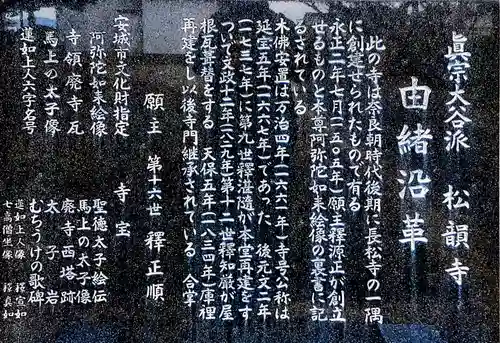 眞宗大谷派 松韻寺
由緒沿革
此の寺は奈良朝時代後期に長松寺の一隅
に創建せられたもので有る
永正二年七月(一五〇五年)願主釋源正が創立
せるものと本尊阿弥陀如来絵像の裏書に記
るされている
木佛安置は万治四年(一六六一年)寺号公称は
延宝五年(一六六七年)であった 後元文二年
(一七三七年)に第九世釋澄隨が本堂再建をす
ついで文政十二年(一八二九年)第十二世釋知厳が屋
根瓦葺替をする 天保五年(一八三四年)庫裡
再建をし以後寺門継承されている 合掌
願主 第十六世 釋正順
安城市文化財指定
阿弥陀如来絵像
寺領廃寺瓦
馬上の太子像
蓮如上人六字名号
寺宝
聖徳太子絵伝
馬上の太子像
廃寺西塔跡
太子岩
むちうけの歌碑
蓮如上人像 釋宣如
七高僧坐像 釋真如